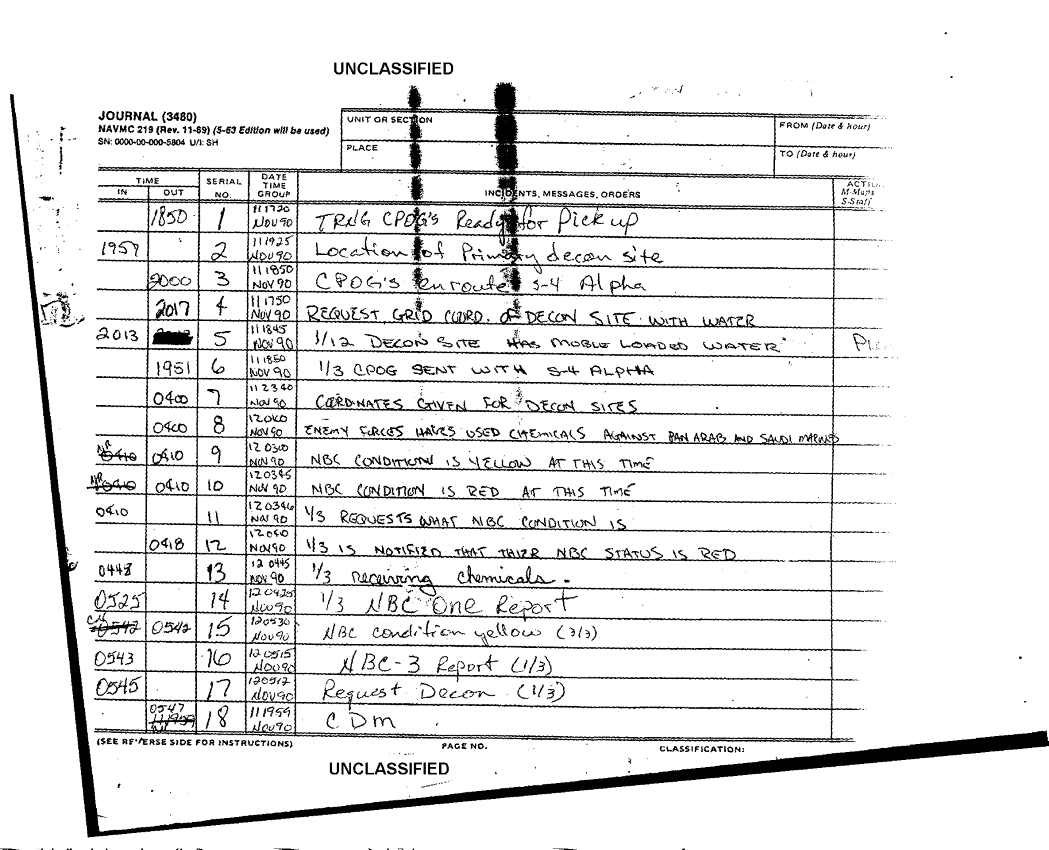 UNCLASSIFIED
JOURNAL (3480)
NAVMC 219 (Rev. 11-69) (5-63 Edition will be used)
SN: 0000-00-000-5804 U/I: SH
UNIT OR SECTION
FROM (Date & hour)
PLACE
TO (Date & hour)
TIME
IN OUT
SERIAL NO.
DATE TIME GROUP
INCIDENTS, MESSAGES, ORDERS
M-Maps
S-Staff
1850 1 111720 NOV 90 TRNG CPOG's Ready for Pick up
1957 2 111925 NOV 90 Location of Primary decon site
2000 3 111850 NOV 90 CPOG's enroute S-4 Alpha
2017 4 111750 NOV 90 REQUEST GRID COORD. of DECON SITE WITH WATER
2013 5 111845 NOV 90 1/12 DECON SITE HAS MOBLE LOADED WATER
1951 6 111850 NOV 90 1/3 CPOG SENT WITH S-4 ALPHA
0400 7 112340 NOV 90 CORDNATES GIVEN FOR DECON SITES
0400 8 NOV 90 ENEMY FORCES HAVES USED CHEMICALS AGAINST PAN ARAB AND SAUDI MARINES
0410 0410 9 120310 NOV 90 NBC CONDITION IS YELLOW AT THIS TIME
0410 0410 10 120345 NOV 90 NBC CONDITION IS RED AT THIS TIME
0410 11 120346 NOV 90 1/3 REQUESTS WHAT NBC CONDITION IS
0418 12 NOV 90 1/3 IS NOTIFIED THAT THIER NBC STATUS IS RED
0448 13 120445 NOV 90 1/3 receiving chemicals.
0525 14 120425 NOV 90 1/3 NBC One Report
0542 0542 15 120530 NOV 90 NBC condition yellow (3/3)
0543 16 120515 NOV 90 NBC-3 Report (1/3)
0545 17 120512 NOV 90 Request Decon (1/3)
0547 18 111959 NOV 90 CDM
(SEE REVERSE SIDE FOR INSTRUCTIONS)
PAGE NO.
CLASSIFICATION:
UNCLASSIFIED